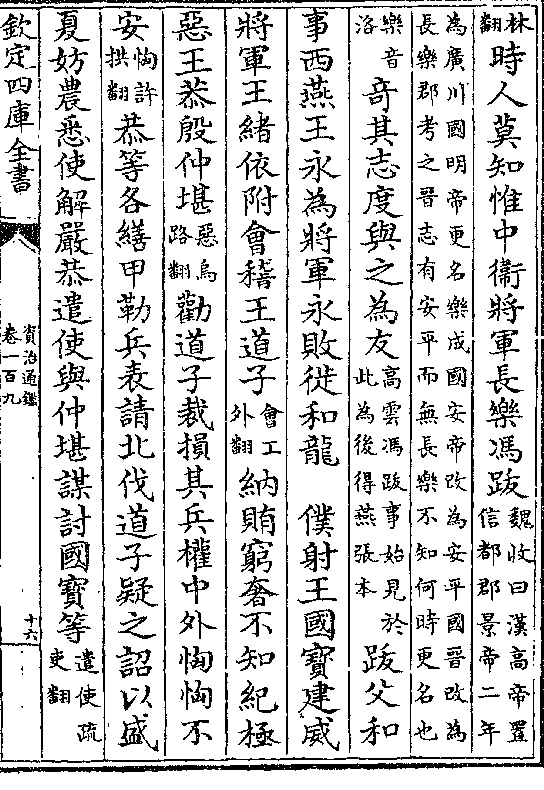 林翻時人莫知惟中衛將軍長樂馮跋魏收曰漢高帝置信都郡景帝二年
為廣川國明帝更名樂成國安帝改為安平國晉改為長樂郡考之晉志有安平而無長樂不知何時更名也
樂音洛奇其志度與之為友高雲馮跋事始見於此為後得燕張本跋父和
事西燕王永為將軍永敗徙和龍 僕射王國寶建威
將軍王緒依附會稽王道子會工外翻納賄窮奢不知紀極
惡王恭殷仲堪惡烏路翻勸道子裁損其兵權中外恟恟不
安恟許拱翻恭等各繕甲勒兵表請北伐道子疑之詔以盛
夏妨農悉使解嚴恭遣使與仲堪謀討國寶等遣使疏吏翻
欽定四庫全書
資治通鑑
卷一百九
十六